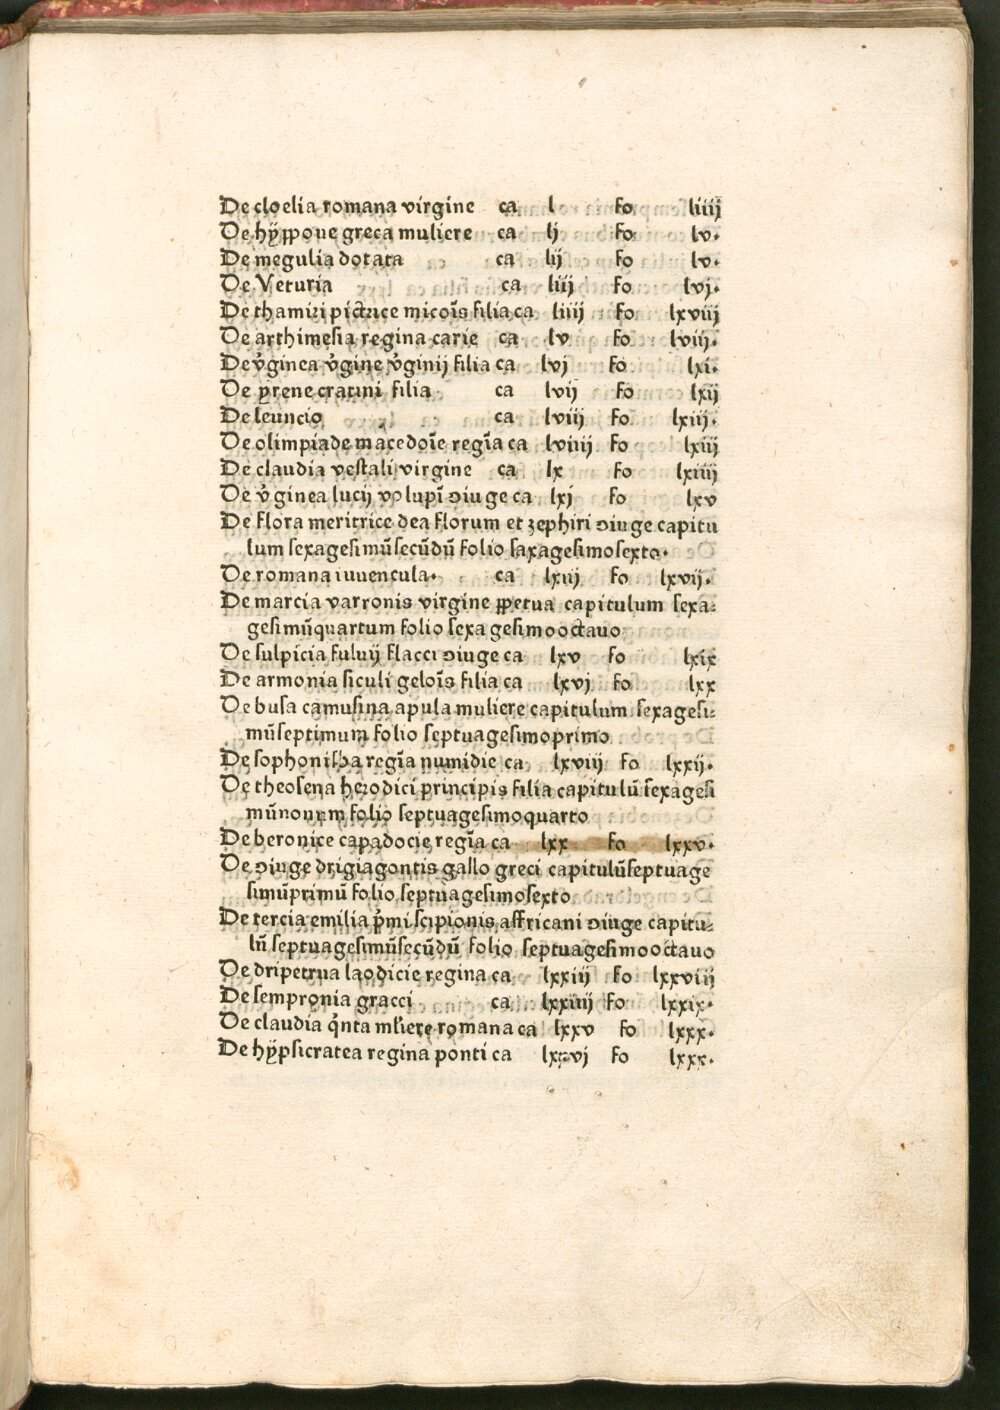 De cloelia romana virgine ca l Fo liiij
De hÿppone greca muliere ca lj Fo lv.
De megulia dotata ca lij Fo lv.
De Veturia ca liij Fo lvj.
De thamiri pictrice micoīs filia ca liiij Fo lxviij
De arthimesia regina carie ca lv Fo lviij.
De v̉ginea v̉gine v̉ginij filia ca lvj Fo lxi.
De pirene cratini filia ca lvij Fo lxij
De leuncio ca lviij Fo lxiij.
De olimpiade macedoīe regīa ca lviiij Fo lxiij
De claudia vestali virgine ca lx Fo lxiiij
De v̉ginea lucij volupī ɔiuge ca lxj Fo lxv
De flora meritrice dea florum et zephiri ɔiuge capitu
lum sexagesimūsecūdū folio saxagesimosexto.
De romana iuvencula. ca lxiij Fo lxvij.
De marcia varronis virgine ꝑpetua capitulum sexa:
gesimūquartum folio sexagesimooctauo
De sulpicia fuluij flacci ɔiuge ca lxv Fo lxix
De armonia siculi geloīs filia ca lxvj Fo lxx
De busa camusina apula muliere capitulum sexagesi:
mūseptimum folio septuagesimoprimo
De sophonisba regīa numidie ca lxviij Fo lxxij.
De theosena herodici principis filia capitulū sexagesi
mūnonum folio septuagesimoquarto
De beronice capadocie regīa ca lxx Fo lxxv.
De ɔiuge drigiagontis gallo greci capitulūseptuage
simūprimū folio septuagesimosexto
De tercia emilia p̉mi scipionis affricani ɔiuge capitu:
lū septuagesimūsecūdū folio septuagesimooctauo
De dripetrua laodicie regina ca lxxiij Fo lxxviij
De sempronia gracci ca lxxiiij Fo lxxix.
De claudia q̉nta mƚiere romana ca lxxv Fo lxxx.
De hÿpsicratea regina ponti ca lxxvj Fo lxxx.